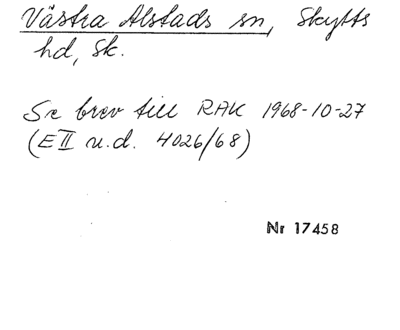 Västra Alstads sn, Skytts
hd, Sk.
Se brev till RAK 1968-10-27
(E II u.d. 4026/68)
Nr 17458